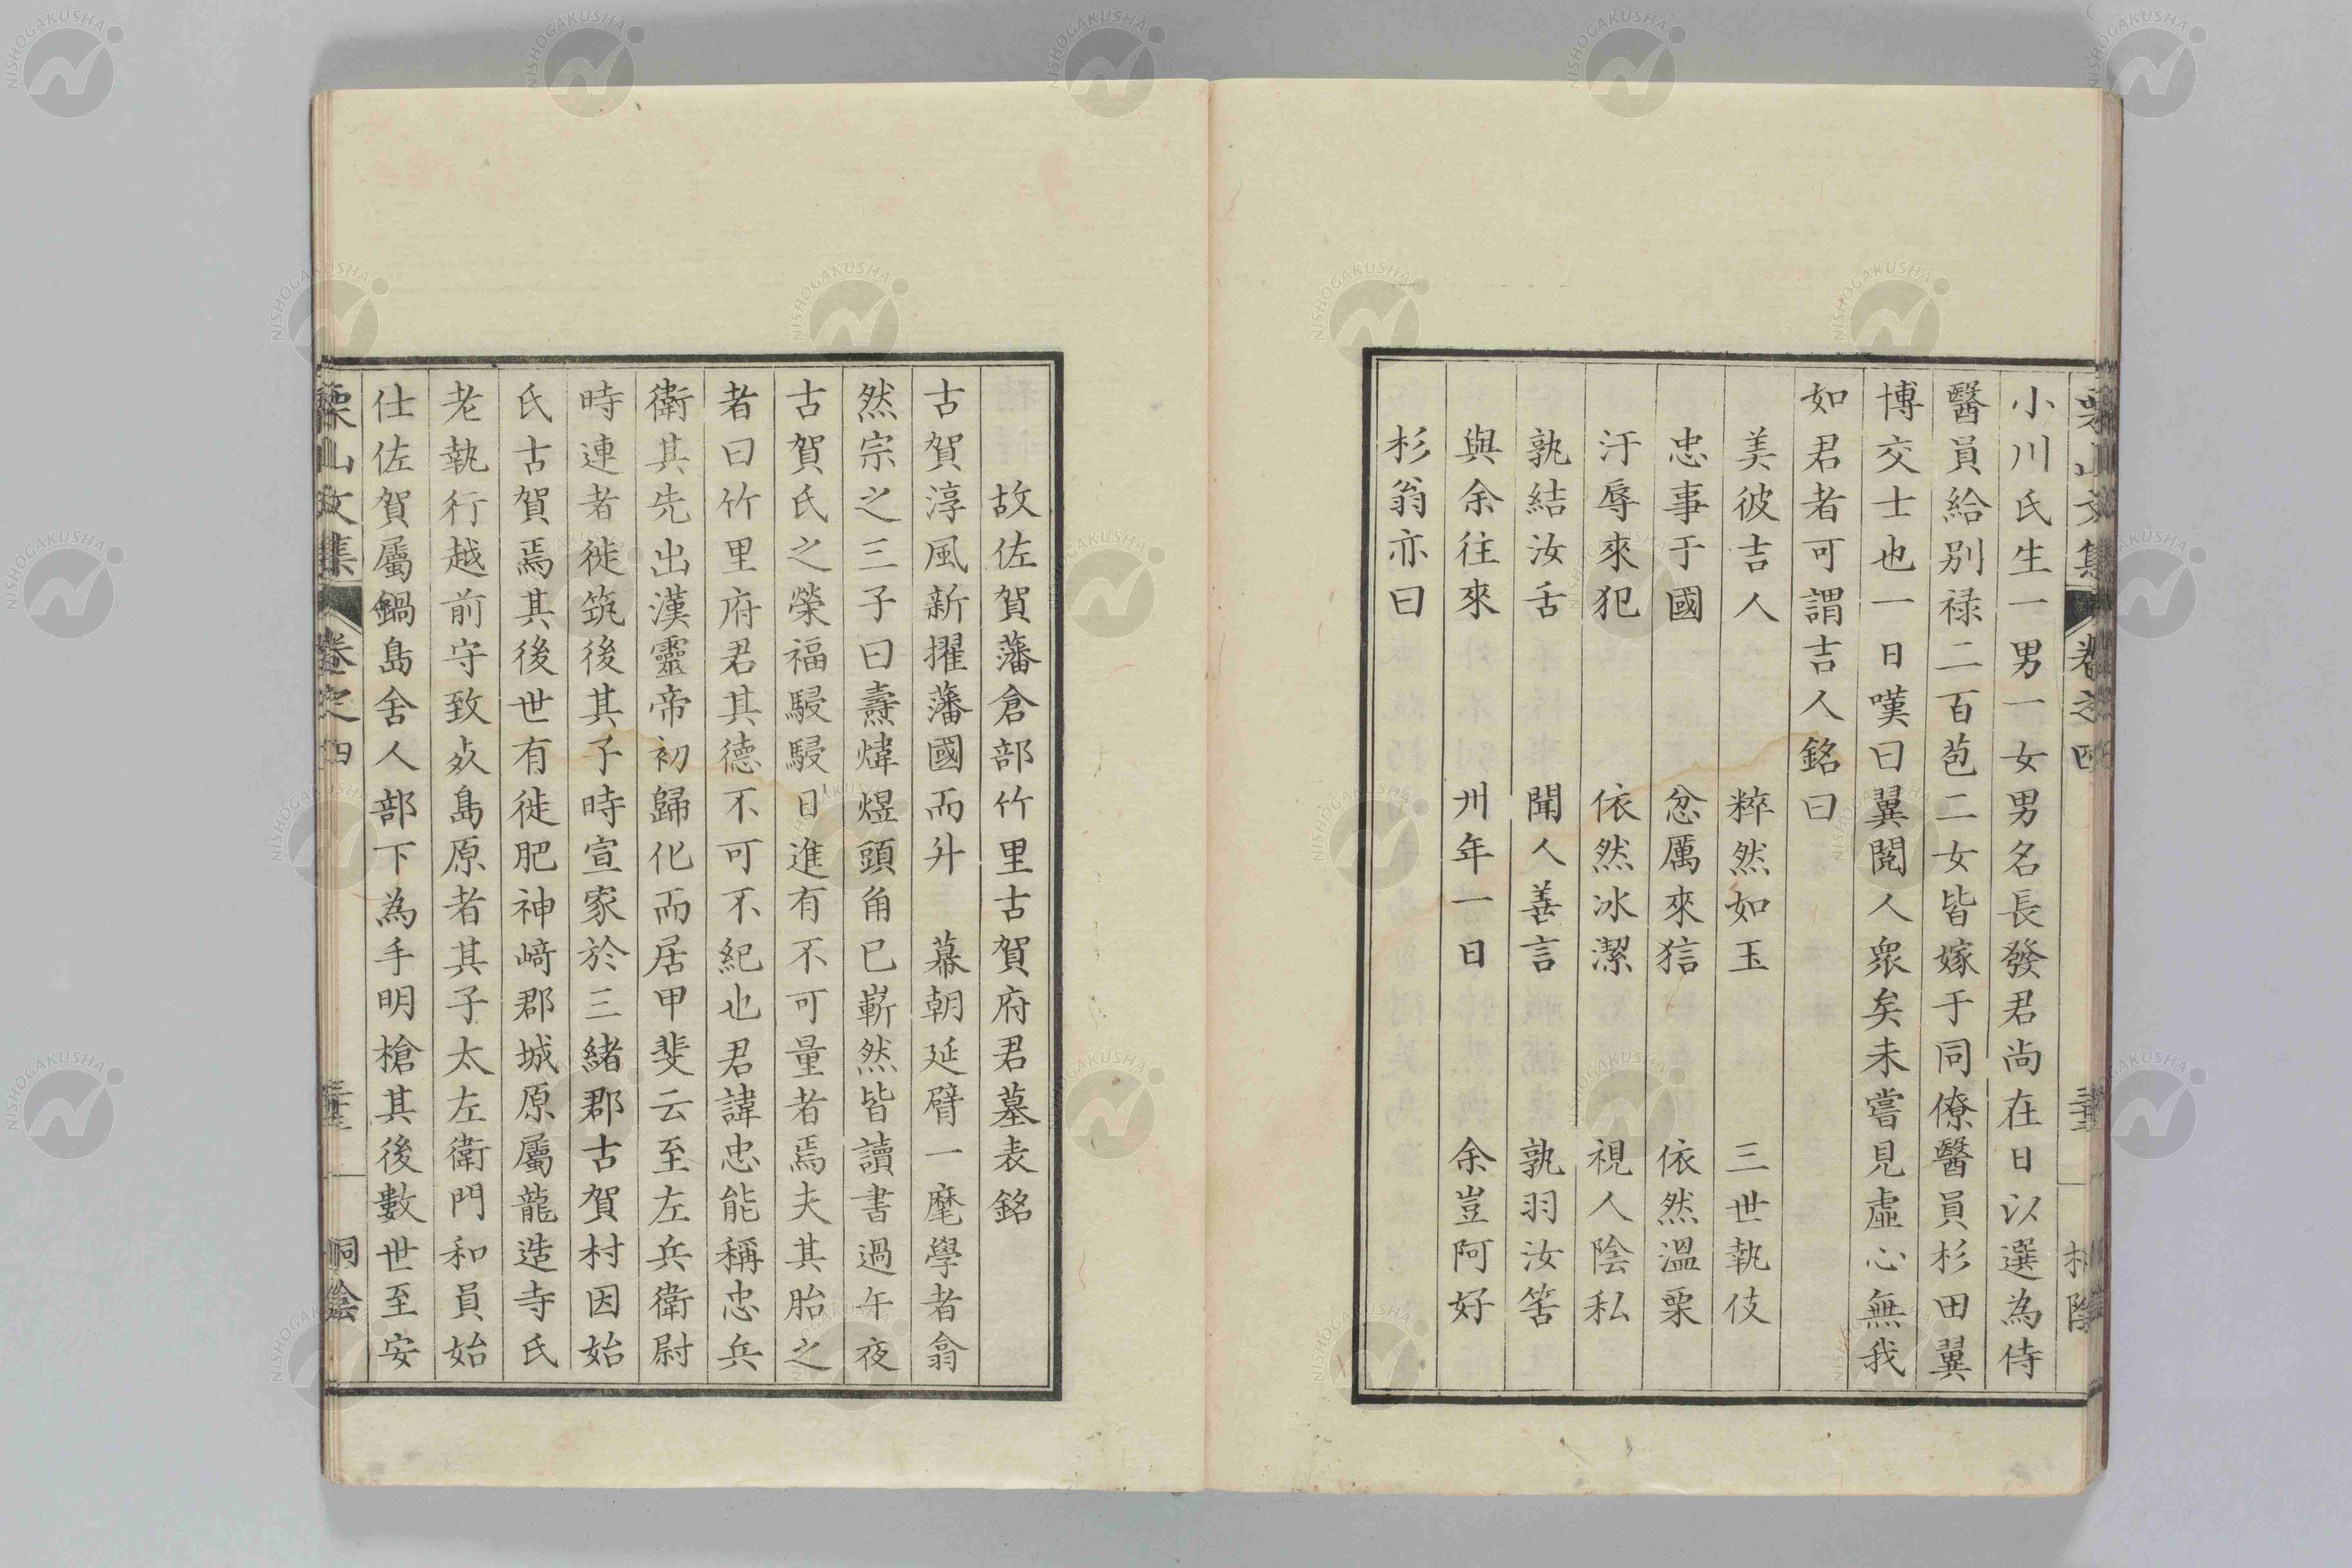 小川氏生一男一女男名長發君尚在日以選為侍
醫員給別禄二百苞二女皆嫁于同僚醫員杉田翼
博交士也一日嘆曰翼閱人衆矣未嘗見虛心無我
如君者可謂吉人銘曰
美彼吉人 粹然如玉 三世執伎
忠事于國 忿厲來狺 依然溫栗
汙辱來犯 依然冰潔 視人陰私
孰結汝舌 聞人善言 孰羽汝筈
與余往來 卅年一日 余豈阿好
杉翁亦曰
故佐賀藩倉部竹里古賀府君墓表銘
古賀淳風新擢藩國而升 幕朝延臂一麾學者翕
然宗之三子曰燾煒煜頭角已嶄然皆讀書過午夜
古賀氏之榮福駸駸日進有不可量者焉夫其胎之
者曰竹里府君其德不可不紀也君諱忠能稱忠兵
衛其先出漢靈帝初歸化而居甲斐云至左兵衛尉
時連者徙筑後其子時宣家於三緒郡古賀村因始
氏古賀焉其後世有徙肥神﨑郡城原屬龍造寺氏
老執行越前守致㱔島原者其子太左衛門和員始
仕佐賀屬鍋島舍人部下為手明槍其後數世至安
栗山文集 卷之四